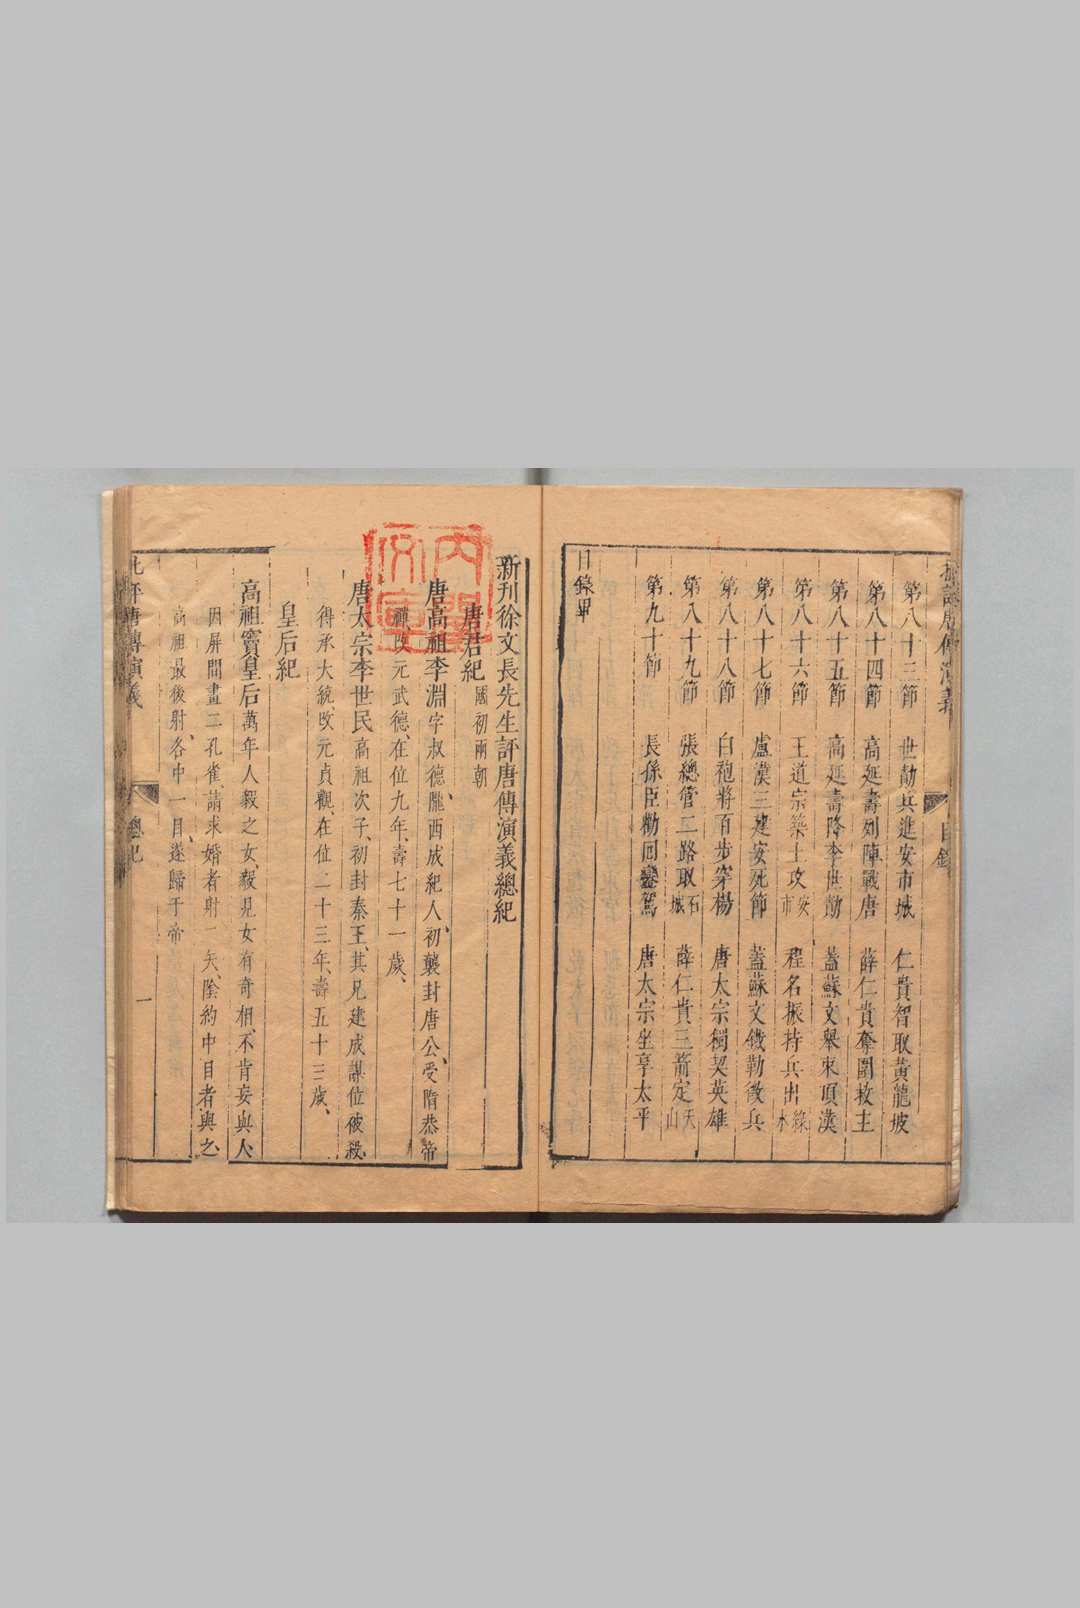 第八十三節　世勣兵進安市城　仁貴智取黃龍坡
第八十四節　高延壽列陣戰唐　薛仁貴奪圍救主
第八十五節　高延壽降李世勣　蓋蘇文舉衆頂漢
第八十六節　王道宗築土攻安市　程名振持兵出綠水
第八十七節　盧漢三建安死節　蓋蘇文鐵勒徵兵
第八十八節　白袍將百步穿楊　唐太宗獨契英雄
第八十九節　張總管二路取石城　薛仁貴三箭定天山
第九十節　長孫臣勸回鑾駕　唐太宗坐享太平
目錄畢
新刊徐文長先生評唐傳演義總紀
唐君紀　國初兩朝
唐高祖李淵字叔德、隴西成紀人、初襲封唐公、受隋恭帝
禪改元武德、在位九年、壽七十一歲、
唐太宗李世民高祖次子、初封秦王、其兄建成謀位被殺、
得承大統改元貞觀、在位二十三年、壽五十三歲、
皇后紀
高祖竇皇后萬年人毅之女、毅見女有奇相、不肯妄與人
因屏間畫二孔雀請求婚者射二矢、陰約中目者與之
高祖最後射、各中一目、遂歸于帝
批評唐傳演義　總紀　一
內閣文庫